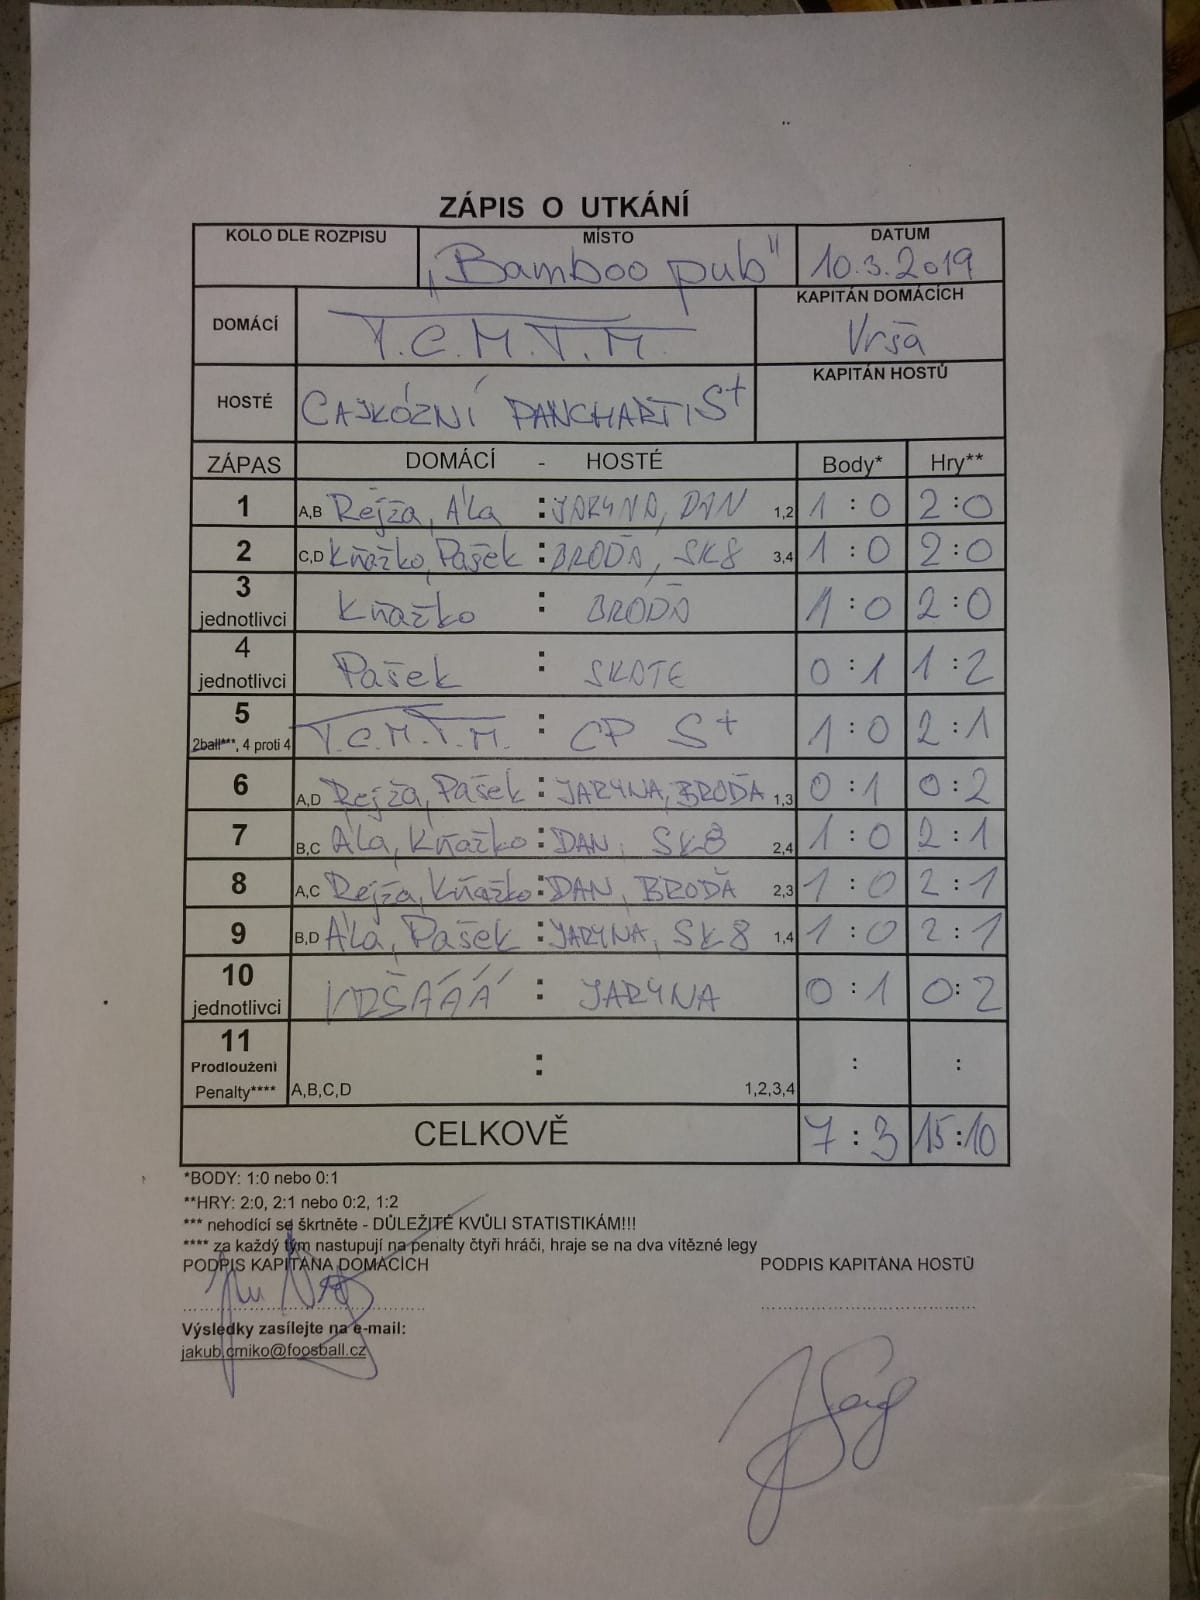 ZÁPIS O UTKÁNÍ
KOLO DLE ROZPISU MÍSTO DATUM
„Bamboo pub" 10.3.2019
DOMÁCÍ T.C.M.T.M. KAPITÁN DOMÁCÍCH
Vrša
HOSTÉ CAJKÓZNÍ PANCHARTI S+ KAPITÁN HOSTŮ
ZÁPAS DOMÁCÍ - HOSTÉ Body* Hry**
1 A,B Rejža, Ála : JARYNA, DAN 1,2 1 : 0 2 : 0
2 C,D Kňažko, Pašek : BROĎA, SK8 3,4 1 : 0 2 : 0
3 jednotlivci Kňažko : BROĎA 1 : 0 2 : 0
4 jednotlivci Pašek : SKATE 0 : 1 1 : 2
5 2ball***, 4 proti 4 T.C.M.T.M. : CP S+ 1 : 0 2 : 1
6 A,D Rejža, Pašek : JARYNA, BROĎA 1,3 0 : 1 0 : 2
7 B,C Ála, Kňažko : DAN, SK8 2,4 1 : 0 2 : 1
8 A,C Rejža, Kňažko : DAN, BROĎA 2,3 1 : 0 2 : 1
9 B,D Ála, Pašek : JARYNA, SK8 1,4 1 : 0 2 : 1
10 jednotlivci VRŠÁÁÁ : JARYNA 0 : 1 0 : 2
11 Prodloužení : : :
Penalty**** A,B,C,D 1,2,3,4
CELKOVĚ 7 : 3 15 : 10
*BODY: 1:0 nebo 0:1
**HRY: 2:0, 2:1 nebo 0:2, 1:2
*** nehodící se škrtněte - DŮLEŽITÉ KVŮLI STATISTIKÁM!!!
**** za každý tým nastupují na penalty čtyři hráči, hraje se na dva vítězné legy
PODPIS KAPITÁNA DOMÁCÍCH PODPIS KAPITÁNA HOSTŮ
Výsledky zasílejte na e-mail:
jakub.cmiko@foosball.cz